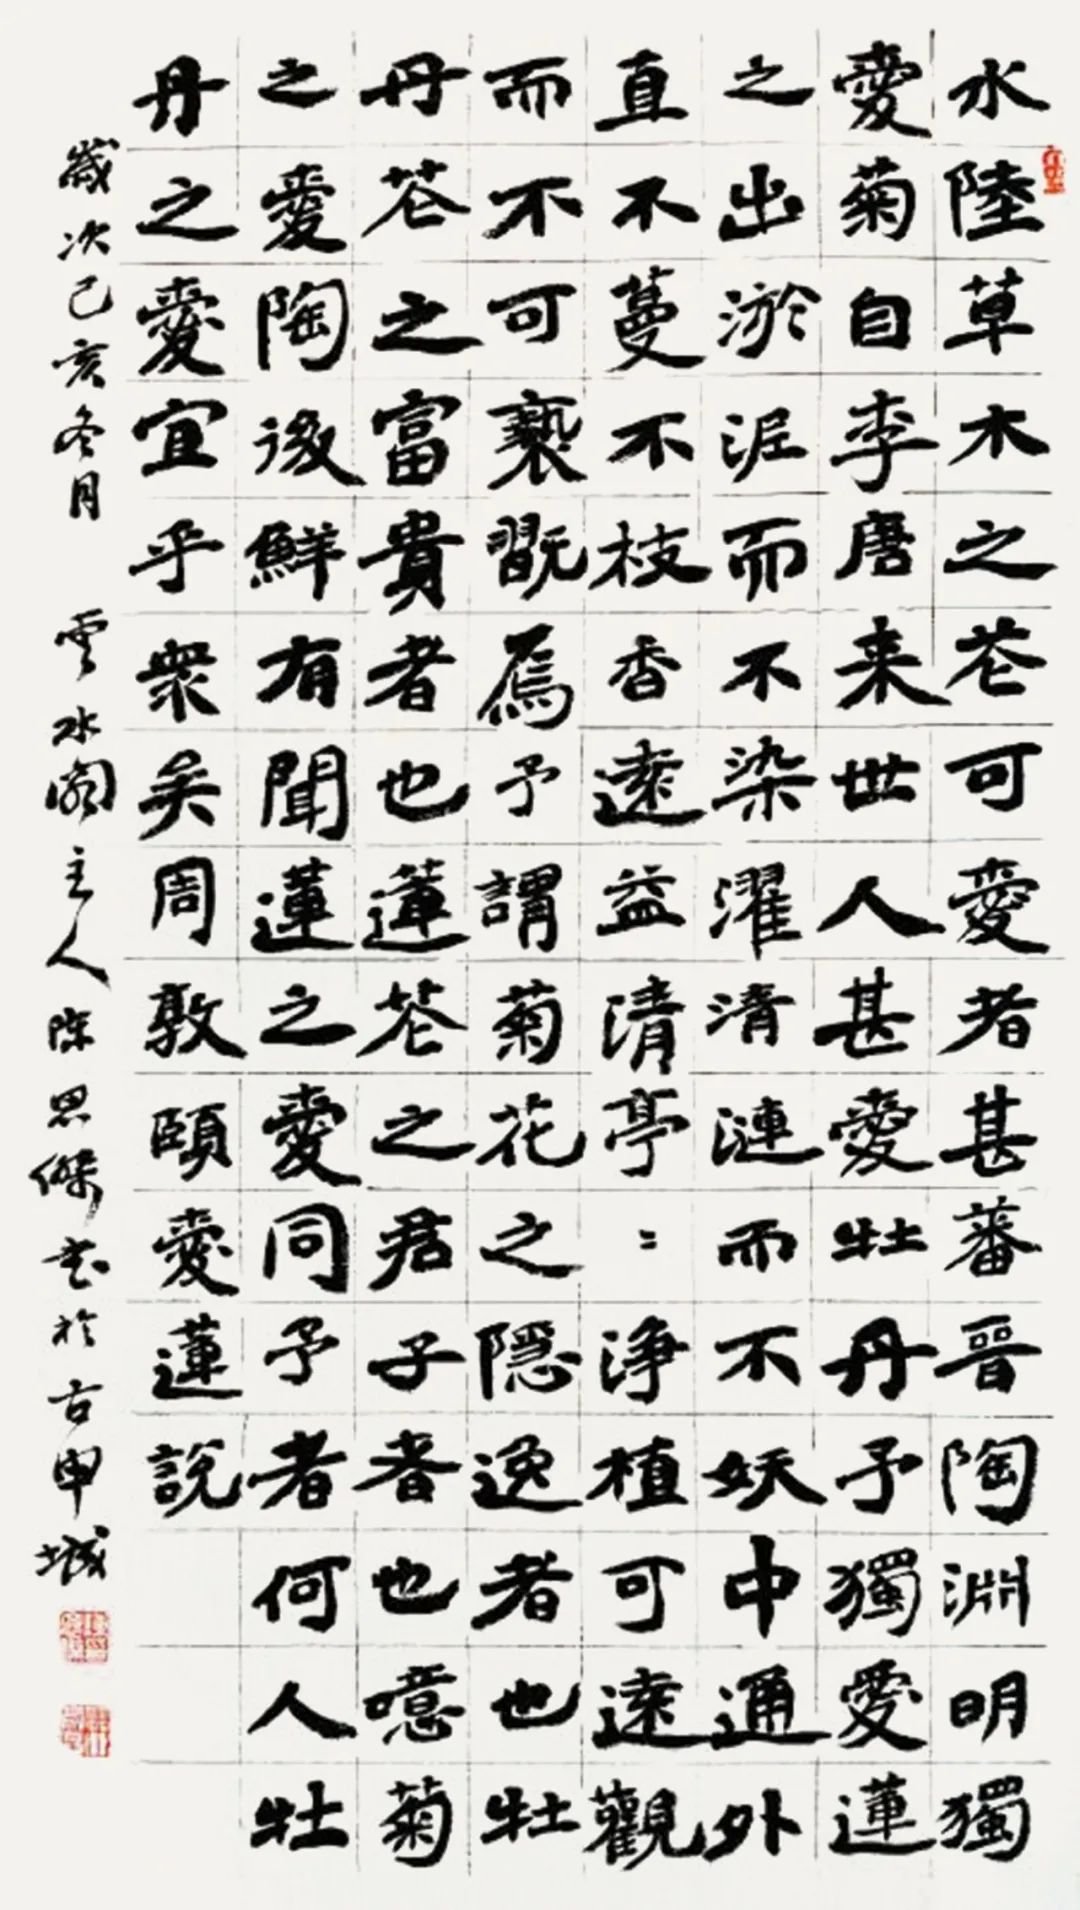 水陸草木之花可愛者甚蕃晉陶淵明獨
愛菊自李唐来世人甚愛牡丹予獨愛蓮
之出淤泥而不染濯清漣而不妖中通外
直不蔓不枝香遠益清亭〻淨植可遠觀
而不可褻翫焉予謂菊花之隱逸者也牡
丹花之富貴者也蓮花之君子者也噫菊
之愛陶後鮮有聞蓮之愛同予者何人牡
丹之愛宜乎衆矣周敦頤愛蓮説
歲次己亥冬月 雲水閣主人陳思傑書於古申城